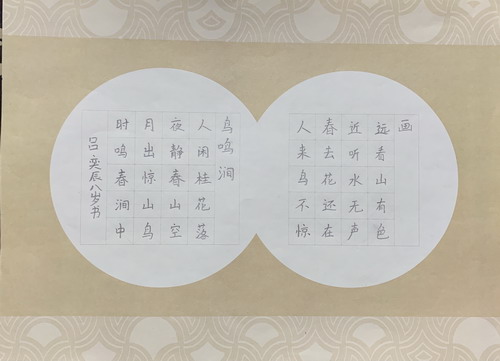 画
远看山有色
近听水无声
春去花还在
人来鸟不惊
鸟鸣涧
人闲桂花落
夜静春山空
月出惊山鸟
时鸣春涧中
吕奕辰八岁书